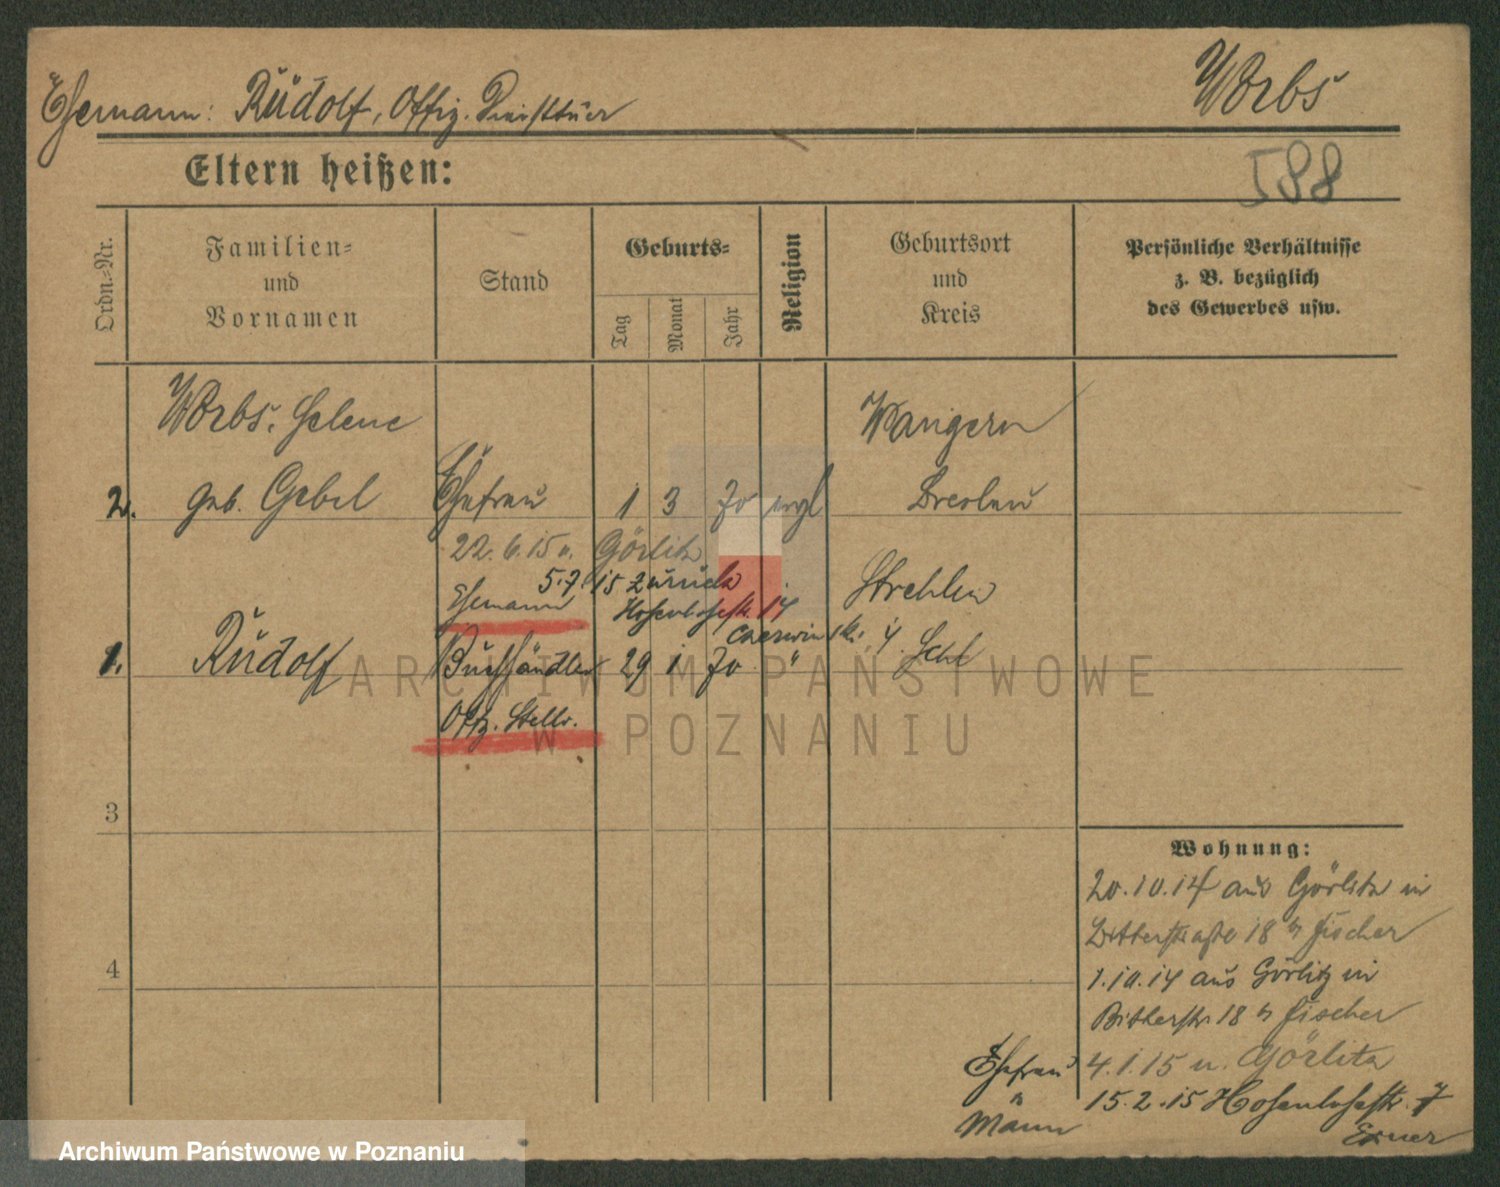 Ehemann: Rudolf, Offiz.
Worbs
Eltern heißen:
588
Ordn.-Nr.
Familien-
und
Vornamen
Stand
Geburts-
Tag
Monat
Jahr
Religion
Geburtsort
und
Kreis
Persönliche Verhältnisse
z. B. bezüglich
des Gewerbes usw.
Worbs, Helene
Wangern
2. geb. Gebel Ehefrau 1 3 70 evgl Breslau
22.6.15 n. Görlitz
5.7.15 zurück
Ehemann Hohenlohestr. 14
Strehlen
1. Rudolf Buchhändler 29 1 70 " i. Schl
Offz. Stellv.
3
4
Wohnung:
20.10.14 aus Görlitz in
Bitterstraße 18 b Fischer
1.10.14 aus Görlitz in
Bitterstr 18 b Fischer
Ehefrau 4.1.15 n. Görlitz
" 15.2.15 Hohenlohestr. 7
Mann Exner
ARCHIWUM PAŃSTWOWE
W POZNANIU
Archiwum Państwowe w Poznaniu